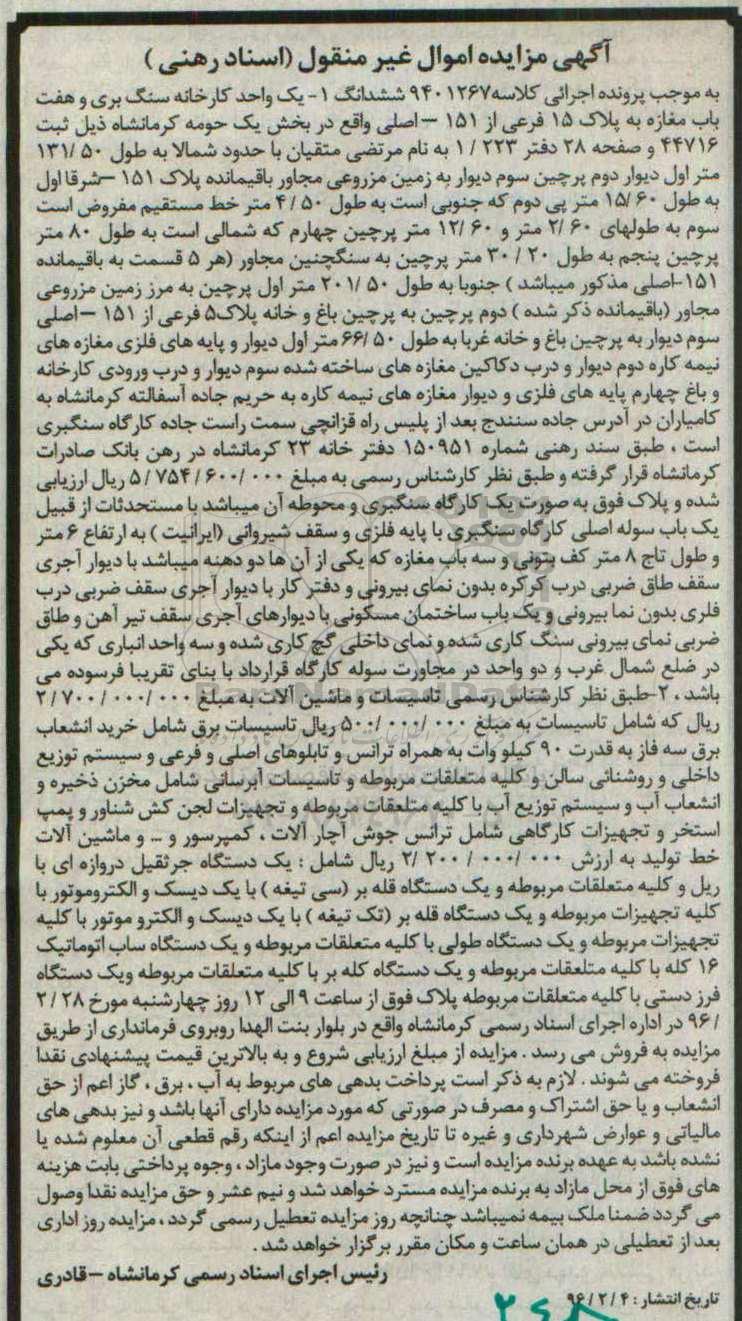 آگهی مزایده اموال غیر منقول (اسناد رهنی)
به موجب پرونده اجرائی کلاسه ۹۴۰۱۲۶۷ ششدانگ ۱- یک واحد کارخانه سنگ بری و هفت
باب مغازه به پلاک ۱۵ فرعی از ۱۵۱ –اصلی واقع در بخش یک حومه کرمانشاه ذیل ثبت
۴۴۷۱۶ و صفحه ۲۸ دفتر ۲۲۳ / ۱ به نام مرتضی متقیان با حدود شمالا به طول ۵۰ /۱۳۱
متر اول دیوار دوم پرچین سوم دیوار به زمین مزروعی مجاور باقیمانده پلاک ۱۵۱ –شرقا اول
به طول ۶۰ /۱۵ متر پی دوم که جنوبی است به طول ۵۰ / ۴ متر خط مستقیم مفروض است
سوم به طولهای ۶۰ /۲ متر و ۶۰ /۱۲ متر پرچین چهارم که شمالی است به طول ۸۰ متر
پرچین پنجم به طول ۲۰ / ۳۰ متر پرچین به سنگچنین مجاور (هر ۵ قسمت به باقیمانده
۱۵۱-اصلی مذکور میباشد ) جنوبا به طول ۵۰ /۲۰۱ متر اول پرچین به مرز زمین مزروعی
مجاور (باقیمانده ذکر شده ) دوم پرچین به پرچین باغ و خانه پلاک۵ فرعی از ۱۵۱ –اصلی
سوم دیوار به پرچین باغ و خانه غربا به طول ۵۰ /۶۶ متر اول دیوار و پایه های فلزی مغازه های
نیمه کاره دوم دیوار و درب دکاکین مغازه های ساخته شده سوم دیوار و درب ورودی کارخانه
و باغ چهارم پایه های فلزی و دیوار مغازه های نیمه کاره به حریم جاده آسفالته کرمانشاه به
کامیاران در آدرس جاده سنندج بعد از پلیس راه قزانچی سمت راست جاده کارگاه سنگبری
است ، طبق سند رهنی شماره ۱۵۰۹۵۱ دفتر خانه ۲۳ کرمانشاه در رهن بانک صادرات
کرمانشاه قرار گرفته و طبق نظر کارشناس رسمی به مبلغ ۵/۷۵۴/۶۰۰/۰۰۰ ریال ارزیابی
شده و پلاک فوق به صورت یک کارگاه سنگبری و محوطه آن میباشد با مستحدثات از قبیل
یک باب سوله اصلی کارگاه سنگبری با پایه فلزی و سقف شیروانی (ایرانیت ) به ارتفاع ۶ متر
و طول تاج ۸ متر کف بتونی و سه باب مغازه که یکی از آن ها دو دهنه میباشد با دیوار آجری
سقف طاق ضربی درب کرکره بدون نمای بیرونی و دفتر کار با دیوار آجری سقف ضربی درب
فلزی بدون نما بیرونی و یک باب ساختمان مسکونی با دیوارهای آجری سقف تیر آهن و طاق
ضربی نمای بیرونی سنگ کاری شده و نمای داخلی گچ کاری شده و سه واحد انباری که یکی
در ضلع شمال غرب و دو واحد در مجاورت سوله کارگاه قرارداد با بنای تقریبا فرسوده می
باشد ، ۲-طبق نظر کارشناس رسمی تاسیسات و ماشین آلات به مبلغ ۲/۷۰۰/۰۰۰/۰۰۰
ریال که شامل تاسیسات به مبلغ ۵۰۰/۰۰۰/۰۰۰ ریال تاسیسات برق شامل خرید انشعاب
برق سه فاز به قدرت ۹۰ کیلو وات به همراه ترانس و تابلوهای اصلی و فرعی و سیستم توزیع
داخلی و روشنائی سالن و کلیه متعلقات مربوطه و تاسیسات آبرسانی شامل مخزن ذخیره و
انشعاب آب و سیستم توزیع آب با کلیه متلعقات مربوطه و تجهیزات لجن کش شناور و پمپ
استخر و تجهیزات کارگاهی شامل ترانس جوش آچار آلات ، کمپرسور و ... و ماشین آلات
خط تولید به ارزش ۲/۲۰۰/۰۰۰/۰۰۰ ریال شامل : یک دستگاه جرثقیل دروازه ای با
ریل و کلیه متعلقات مربوطه و یک دستگاه قله بر (سی تیغه ) با یک دیسک و الکتروموتور با
کلیه تجهیزات مربوطه و یک دستگاه قله بر (تک تیغه ) با یک دیسک و الکترو موتور با کلیه
تجهیزات مربوطه و یک دستگاه طولی با کلیه متعلقات مربوطه و یک دستگاه ساب اتوماتیک
۱۶ کله با کلیه متلعقات مربوطه و یک دستگاه کله بر با کلیه متعلقات مربوطه ویک دستگاه
فرز دستی با کلیه متعلقات مربوطه پلاک فوق از ساعت ۹ الی ۱۲ روز چهارشنبه مورخ ۲۸ / ۲
/ ۹۶ در اداره اجرای اسناد رسمی کرمانشاه واقع در بلوار بنت الهدا روبروی فرمانداری از طریق
مزایده به فروش می رسد . مزایده از مبلغ ارزیابی شروع و به بالاترین قیمت پیشنهادی نقدا
فروخته می شوند . لازم به ذکر است پرداخت بدهی های مربوط به آب ، برق ، گاز اعم از حق
انشعاب و یا حق اشتراک و مصرف در صورتی که مورد مزایده دارای آنها باشد و نیز بدهی های
مالیاتی و عوارض شهرداری و غیره تا تاریخ مزایده اعم از اینکه رقم قطعی آن معلوم شده یا
نشده باشد به عهده برنده مزایده است و نیز در صورت وجود مازاد ، وجوه پرداختی بابت هزینه
های فوق از محل مازاد به برنده مزایده مسترد خواهد شد و نیم عشر و حق مزایده نقدا وصول
می گردد ضمنا ملک بیمه نمیباشد چنانچه روز مزایده تعطیل رسمی گردد ، مزایده روز اداری
بعد از تعطیلی در همان ساعت و مکان مقرر برگزار خواهد شد .
رئیس اجرای اسناد رسمی کرمانشاه –قادری
تاریخ انتشار : ۹۶/۲/۴